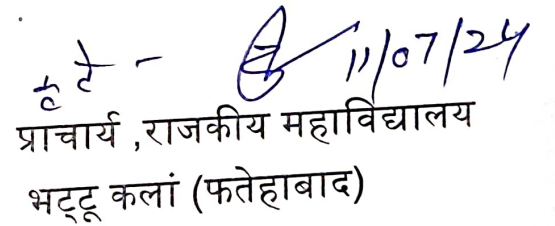 कृते - 11/07/24
प्राचार्य ,राजकीय महाविद्यालय
भट्टू कलां (फतेहाबाद)